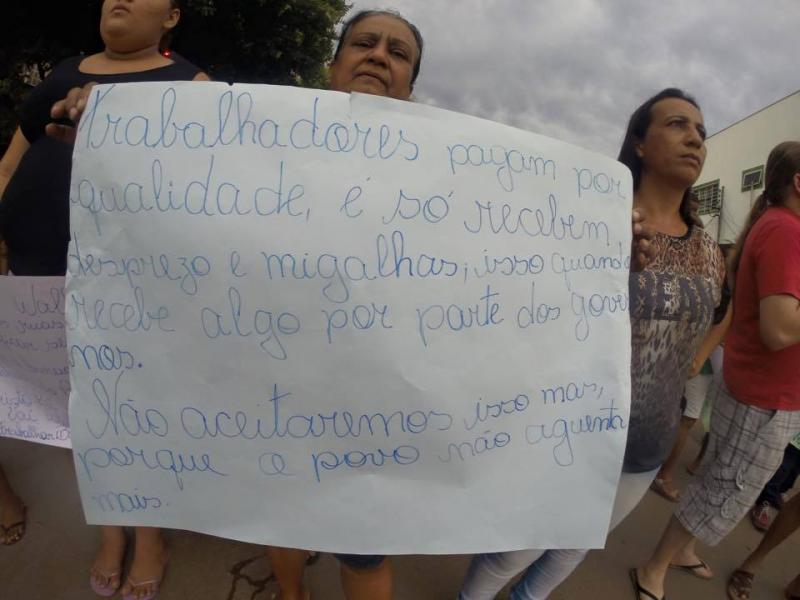 Trabalhadores pagam por
qualidade, é só recebem
desprezo e migalhas, isso quando
recebe algo por parte dos gover
nos.
Não aceitaremos isso mas,
porque o povo não aguenta
mais.